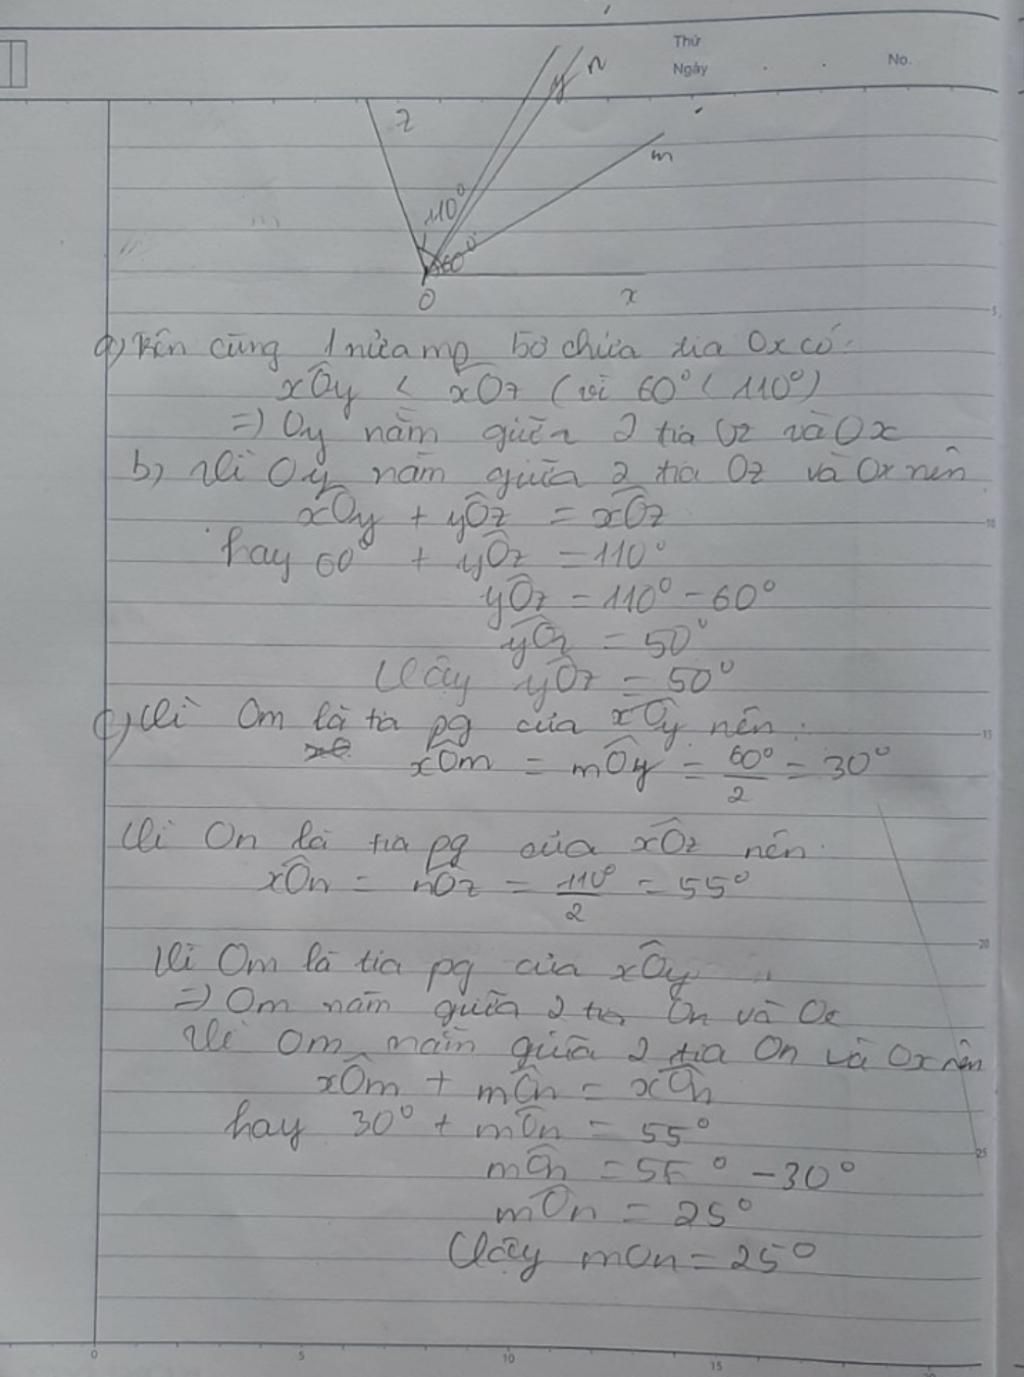 Thứ
Ngày
No.
z
y
n
m
110°
60°
O
x
a) Trên cùng 1 nửa mp bờ chứa tia Ox có:
xÔy < xÔz (vì 60° < 110°)
=) Oy nằm giữa 2 tia Oz và Ox
b) Vì Oy nằm giữa 2 tia Oz và Ox nên
xÔy + yÔz = xÔz
hay 60° + yÔz = 110°
yÔz = 110° - 60°
yÔz = 50°
Vậy yÔz = 50°
c) Vì Om là tia pg của xÔy nên:
xÔm = mÔy = 60°/2 = 30°
Vì On là tia pg của xÔz nên:
xÔn = nÔz = 110°/2 = 55°
Vì Om là tia pg của xÔy
=) Om nằm giữa 2 tia On và Ox
Vì Om nằm giữa 2 tia On và Ox nên
xÔm + mÔn = xÔn
hay 30° + mÔn = 55°
mÔn = 55° - 30°
mÔn = 25°
Vậy mOn = 25°
5
10
15
20
25
0 5 10 15